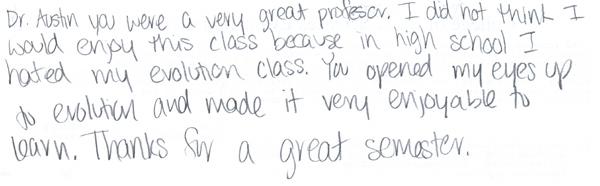 Dr. Austin you were a very great professor. I did not think I
would enjoy this class because in high school I
hated my evolution class. You opened my eyes up
to evolution and made it very enjoyable to
learn. Thanks for a great semester.